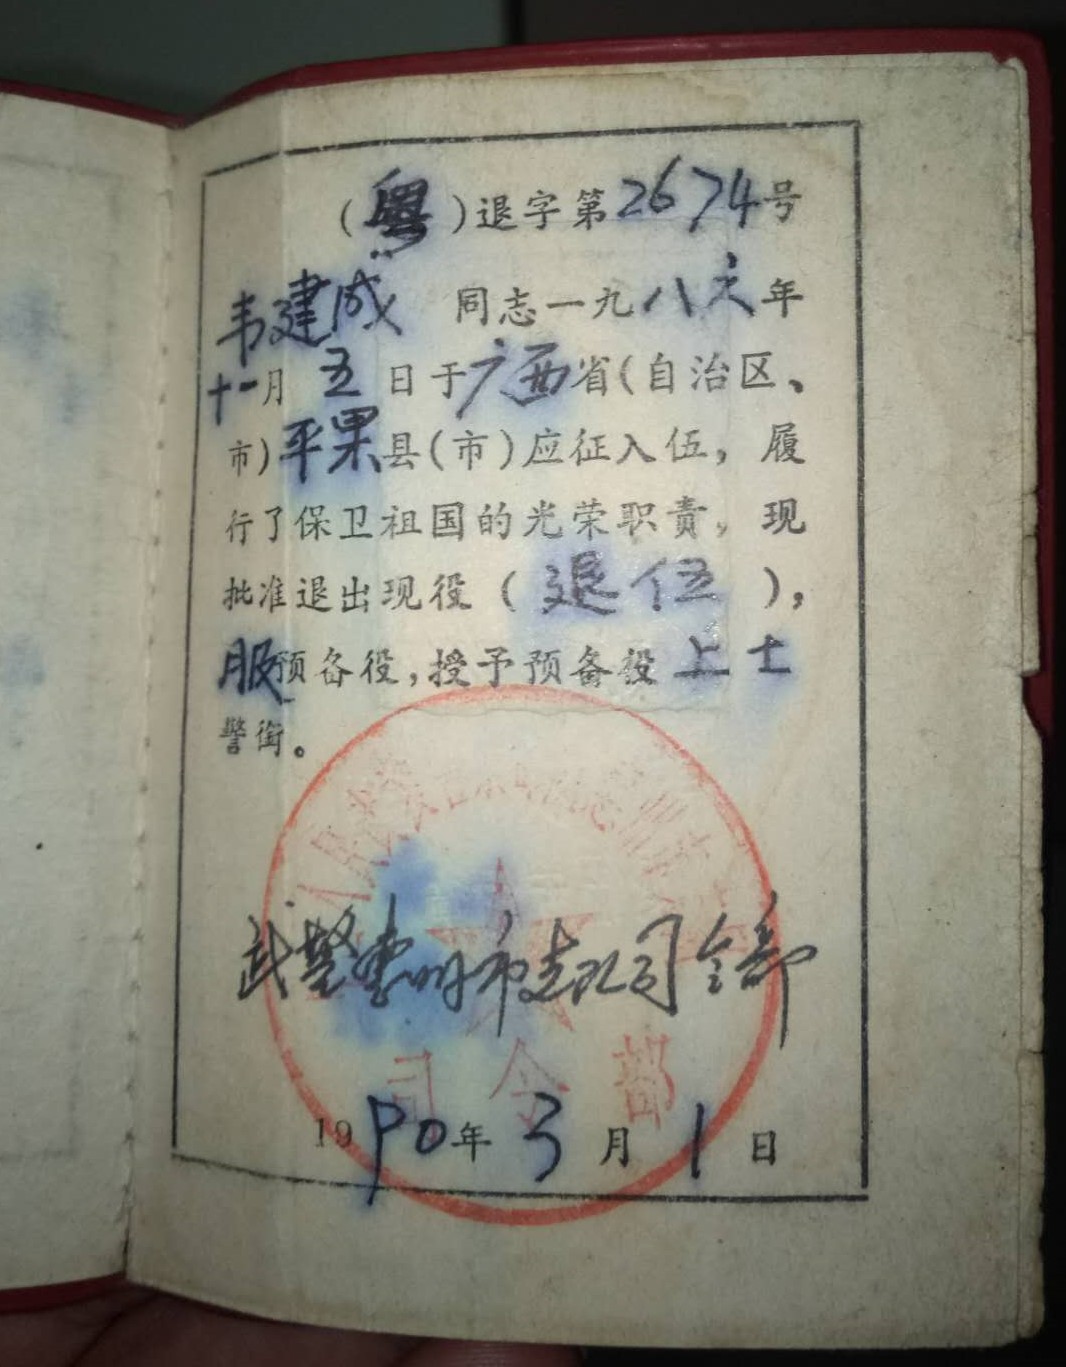 (粤)退字第2674号
韦建成 同志一九八六年
十一月 五 日于广西省(自治区、
市)平果县(市)应征入伍，履
行了保卫祖国的光荣职责，现
批准退出现役（退伍），
服预备役，授予预备役上士
警衔。
武警惠州市支队司令部
司令部
1990年3月1日